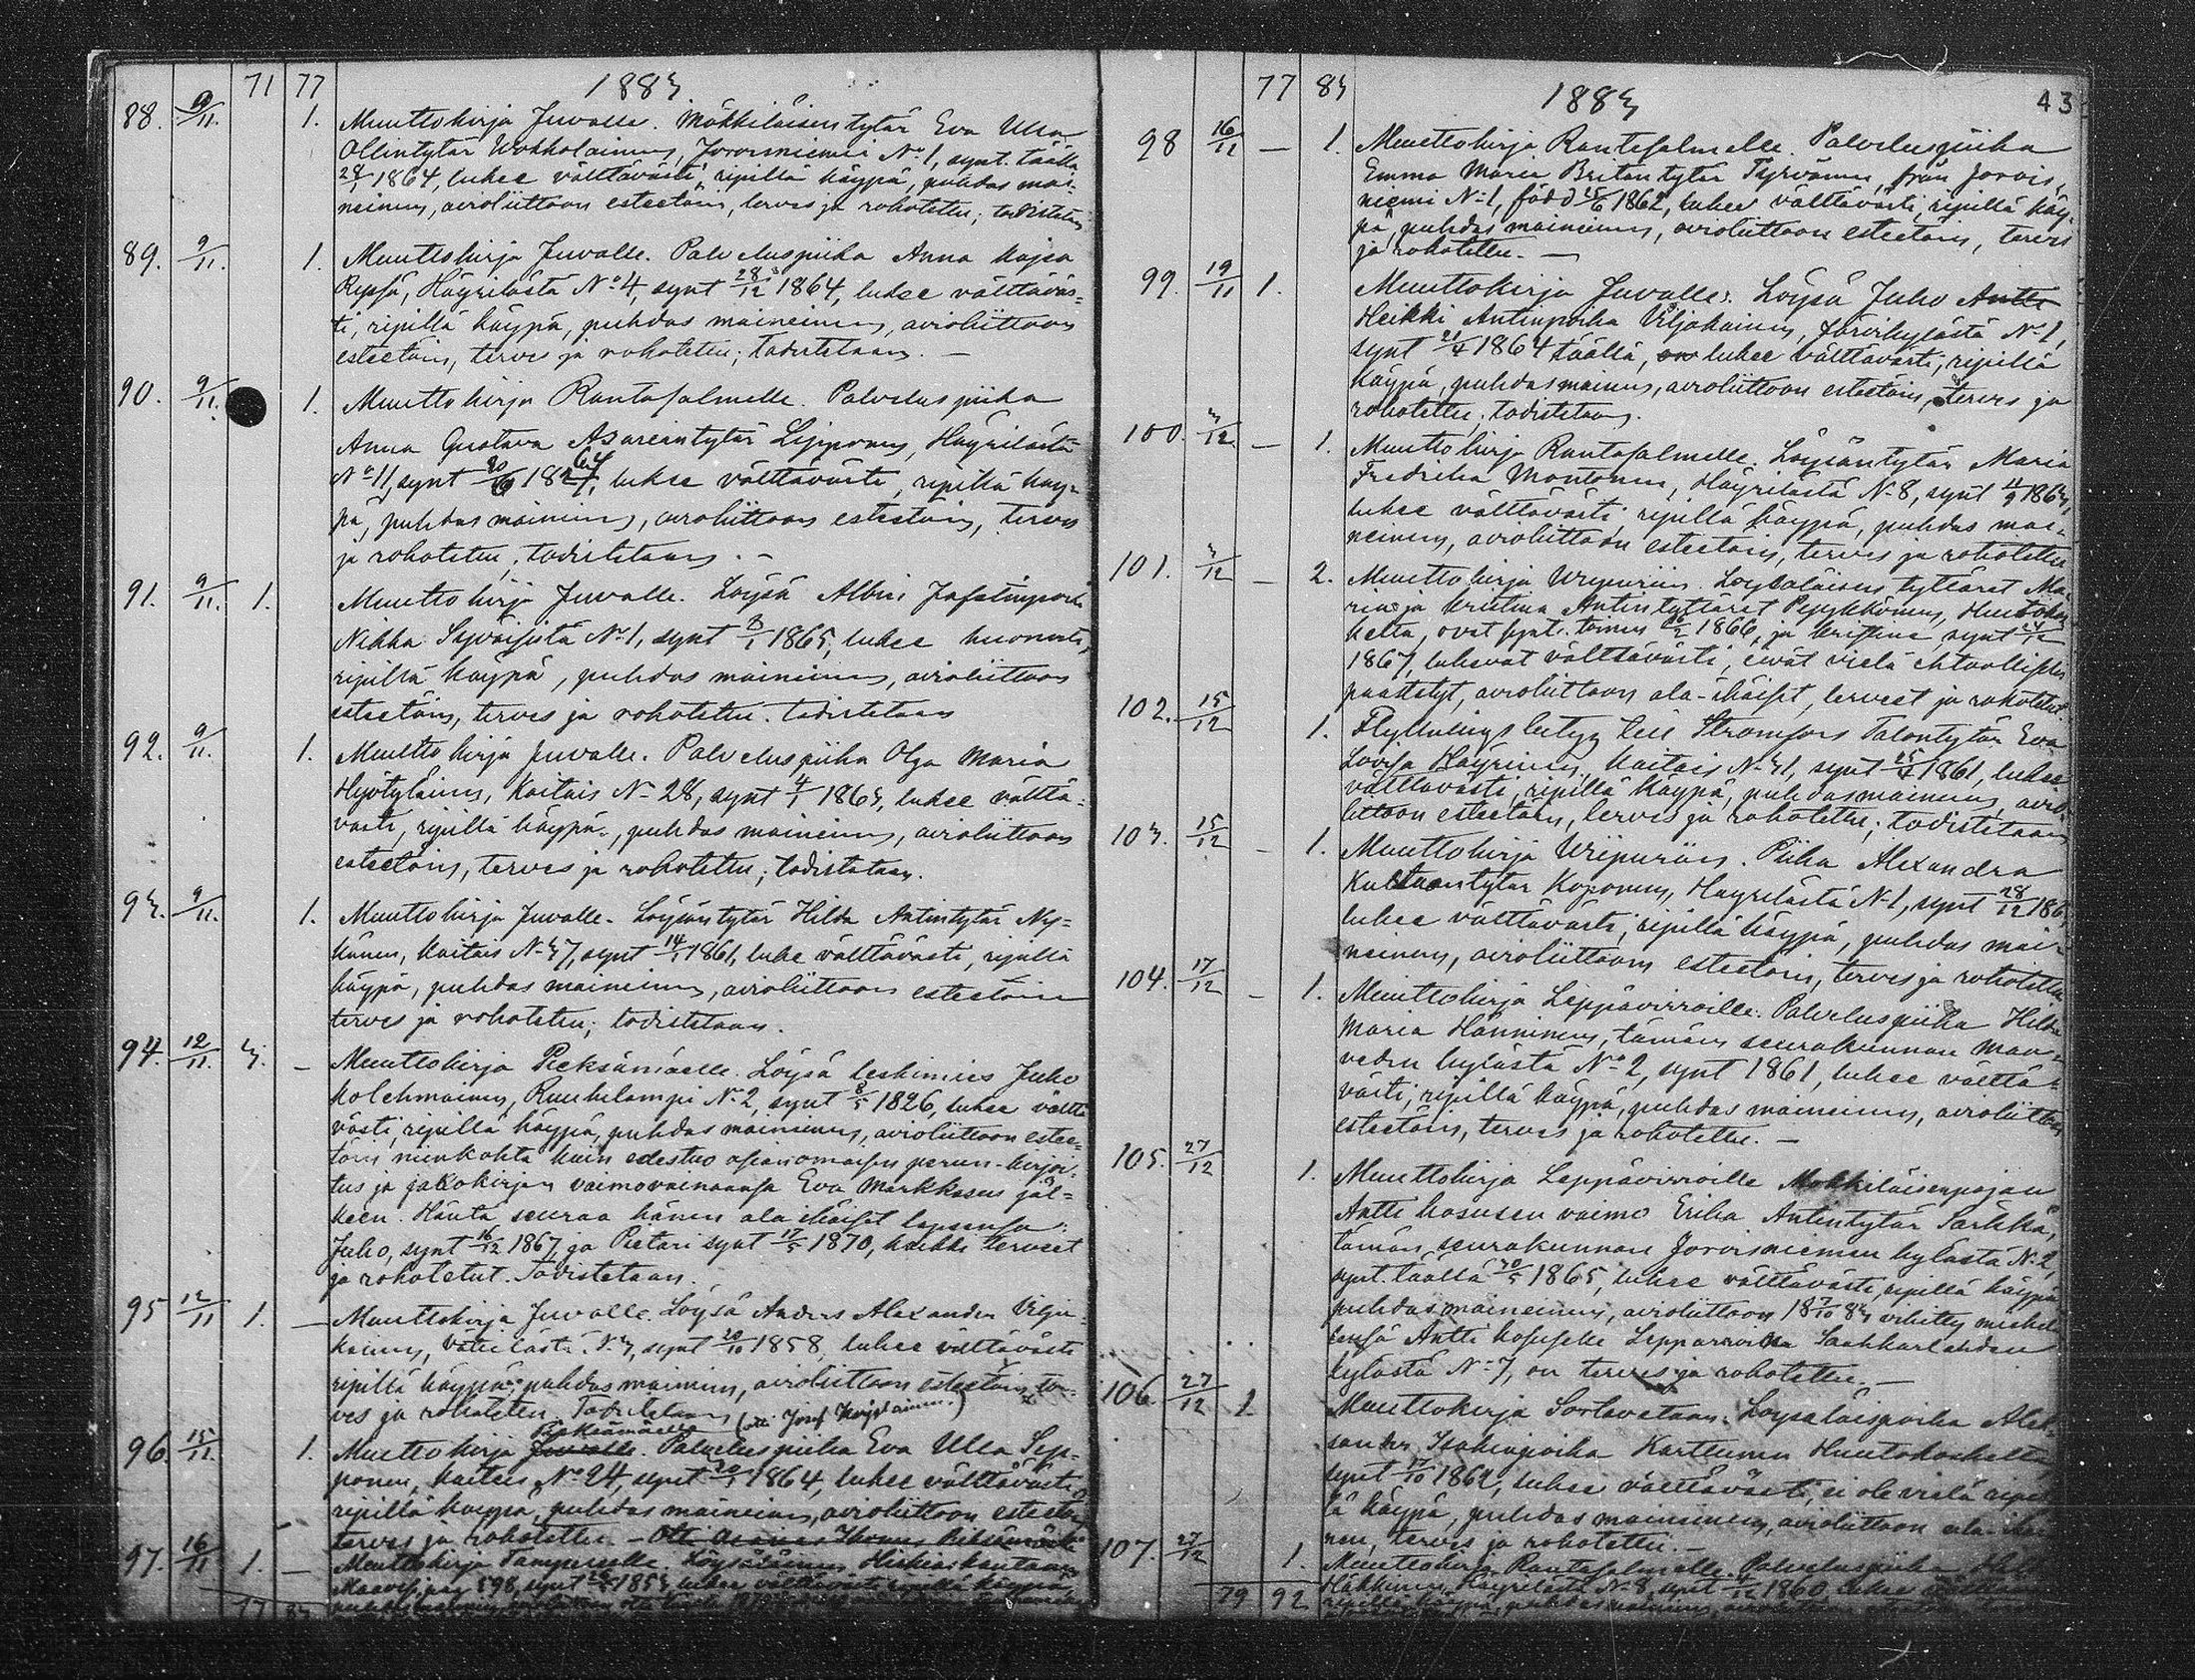 71 77 1883
88. 9/11. 1. Muuttokirja Juvalle. Mökkiläisen tytär Eva Ulla
Ollintytär Wokkolainen, Joroisniemi No 1, synt. täällä
28/1 1864, lukee välttävästi, ripillä käypä, puhdas mai-
neinen, avioliittoon esteetöin, terves ja rokotettu; todistetaan
89. 9/11. 1. Muuttokirja Juvalle. Palveluspiika Anna Kajsa
Repsä, Häyrilästä No 4, synt 28/12 1864, lukee välttäväs-
ti, ripillä käypä, puhdas maineinen, avioliittoon
esteetöin, terves ja rokotettu; todistetaan. —
90. 9/11. 1. Muuttokirja Rantasalmelle. Palveluspiika
Anna Gustava Asareintytär Lipponen, Häyrilästä
No 11, synt 1864, lukee välttävästi, ripillä käy-
pä, puhdas maineinen, avioliittoon esteetöin, terves
ja rokotettu; todistetaan. —
91. 9/11. 1. Muuttokirja Juvalle. Löysä Albin
Nikka Syväisistä No 1, synt 1865, lukee huonosti,
ripillä käypä, puhdas maineinen, avioliittoon
esteetöin, terves ja rokotettu. todistetaan
92. 9/11. 1. Muuttokirja Juvalle. Palveluspiika Olga Maria
Hyötyläinen, Kaitais No 28, synt 4/1 1863, lukee välttä-
västi, ripillä käypä, puhdas maineinen, avioliittoon
esteetöin, terves ja rokotettu; todistetaan.
93. 9/11. 1. Muuttokirja Juvalle. Löysäntytär Hilda Antintytär Ny-
känen, Kaitais No 37, synt 14/1 1861, lukee välttävästi, ripillä
käypä, puhdas maineinen, avioliittoon esteetöin
terves ja rokotettu; todistetaan.
94. 12/11. 3. — Muuttokirja Pieksämäelle. Löysä leskimies Juho
Kolehmainen, Ruuhilampi No 2, synt 8/5 1826, lukee vältt
västi, ripillä käypä, puhdas maineinen, avioliittoon estee-
töin niinkohta kuin edestuo asianomaisen perun-kirjoi-
tus ja jakokirjan vaimovainaansa Eva Markkasen jäl-
keen. Häntä seuraa hänen ala-ikäiset lapsensa:
Juho, synt 16/12 1867, ja Pietari synt 17/5 1870, kaikki terveet
ja rokotetut. Todistetaan.
95 12/11 1. — Muuttokirja Juvalle. Löysä Anders Alexander Vilja-
kainen, Vätilästä No 3, synt 20/10 1858, lukee välttävästi
ripillä käypä, puhdas maineinen, avioliittoon esteetöin, ter-
ves ja rokotettu. Todistetaan
Pieksämäelle
96. 15/11. 1. Muuttokirja Juvalle. Palveluspiika Eva Ulla Sep-
ponen, Kaitais No 24, synt 1864, lukee välttävästi
ripillä käypä, puhdas maineinen, avioliittoon esteetöin
terves ja rokotettu. —
97. 16/11 1. — Muuttokirja Tampereelle. Löysäläinen
synt 1853 lukee välttävästi ripillä käypä,
77 83
77 83 1883 43
98 16/11 — 1. Muuttokirja Rantasalmelle. Palveluspiika
Emma Maria Britantytär Tyrvänen, från Jorois-
niemi No 1, född 25/6 1862, lukee välttävästi, ripillä käy-
pä, puhdas maineinen, avioliittoon esteetöin, terves
ja rokotettu. —
99. 19/11 1. Muuttokirja Juvalle. Löysä Juho Antti
Heikki Antinpoika Viljakainen, Järvikylästä No 1,
synt 21/4 1864 täällä, on lukee välttävästi, ripillä
käypä, puhdas maineinen, avioliittoon esteetöin, terves ja
rokotettu; todistetaan.
100. 3/12. — 1. Muuttokirja Rantasalmelle. Löysäntytär Maria
Fredrika Montonen, Häyrilästä No 8, synt 4/9 1863,
lukee välttävästi, ripillä käypä, puhdas mai-
neinen, avioliittoon esteetöin, terves ja rokotettu
101. 3/12 — 2. Muuttokirja Wiipuriin. Loysäläisen tyttäret Ma-
ria ja Kristina Antintyttäret Pepykkönen, Huutokos-
kelta, ovat synt. toinen 1866, ja Kristina synt
1867, lukevat välttävästi, eivät vielä ehtoolliselle
päästetyt, avioliittoon ala-ikäiset, terveet ja rokotetut.
102. 15/12 1. Flyttningsbetyg till Strömfors Talontytär Eva
Lovisa Häyrinen, Kaitais No 31, synt 25/4 1861, lukee
välttävästi, ripillä käypä, puhdas maineinen, avio-
liittoon esteetöin, terves ja rokotettu; todistetaan
103. 15/12 — 1. Muuttokirja Wiipuriin. Piika Alexandra
Kustaantytär Koponen, Häyrilästä No 1, synt 28/12 186
lukee välttävästi, ripillä käypä, puhdas mai-
neinen, avioliittoon esteetöin, terves ja rokotettu
104. 17/12 — 1. Muuttokirja Leppävirroille. Palveluspiika Hilda
Maria Hänninen, tämän seurakunnan Maa-
veden kylästä No 2, synt 1861, lukee välttä-
västi, ripillä käypä, puhdas maineinen, avioliittoon
esteetöin, terves ja rokotettu. —
105. 27/12 1. Muuttokirja Leppävirroille Mökkiläisenpojan
Antti Kososen vaimo Erika Antintytär Särkkä,
tämän seurakunnan Joroisniemen kylästä No 2,
synt. täällä 30/5 1865, lukee välttävästi, ripillä käypä
puhdas maineinen, avioliittoon 18 7/10 83 vihitty miehe
Antti Kososelle Leppävirroilta
kylästä No 7, on terves ja rokotettu. —
106. 27/12 1. Muuttokirja Sortavalaan. Loysäläispoika Alek-
sander Isakinpoika Karttunen Huutokoskelta
synt 17/10 1862, lukee välttävästi, ei ole vielä ripil
lä käypä, puhdas maineinen, avioliittoon ala-ikäi
nen, terves ja rokotettu. —
107. 27/12 1. Muuttokirja Rantasalmelle. Palveluspiika
Häkkinen, Häyrilästä No 8, synt 1860, lukee
79 92 ripillä käypä, puhdas maineinen,